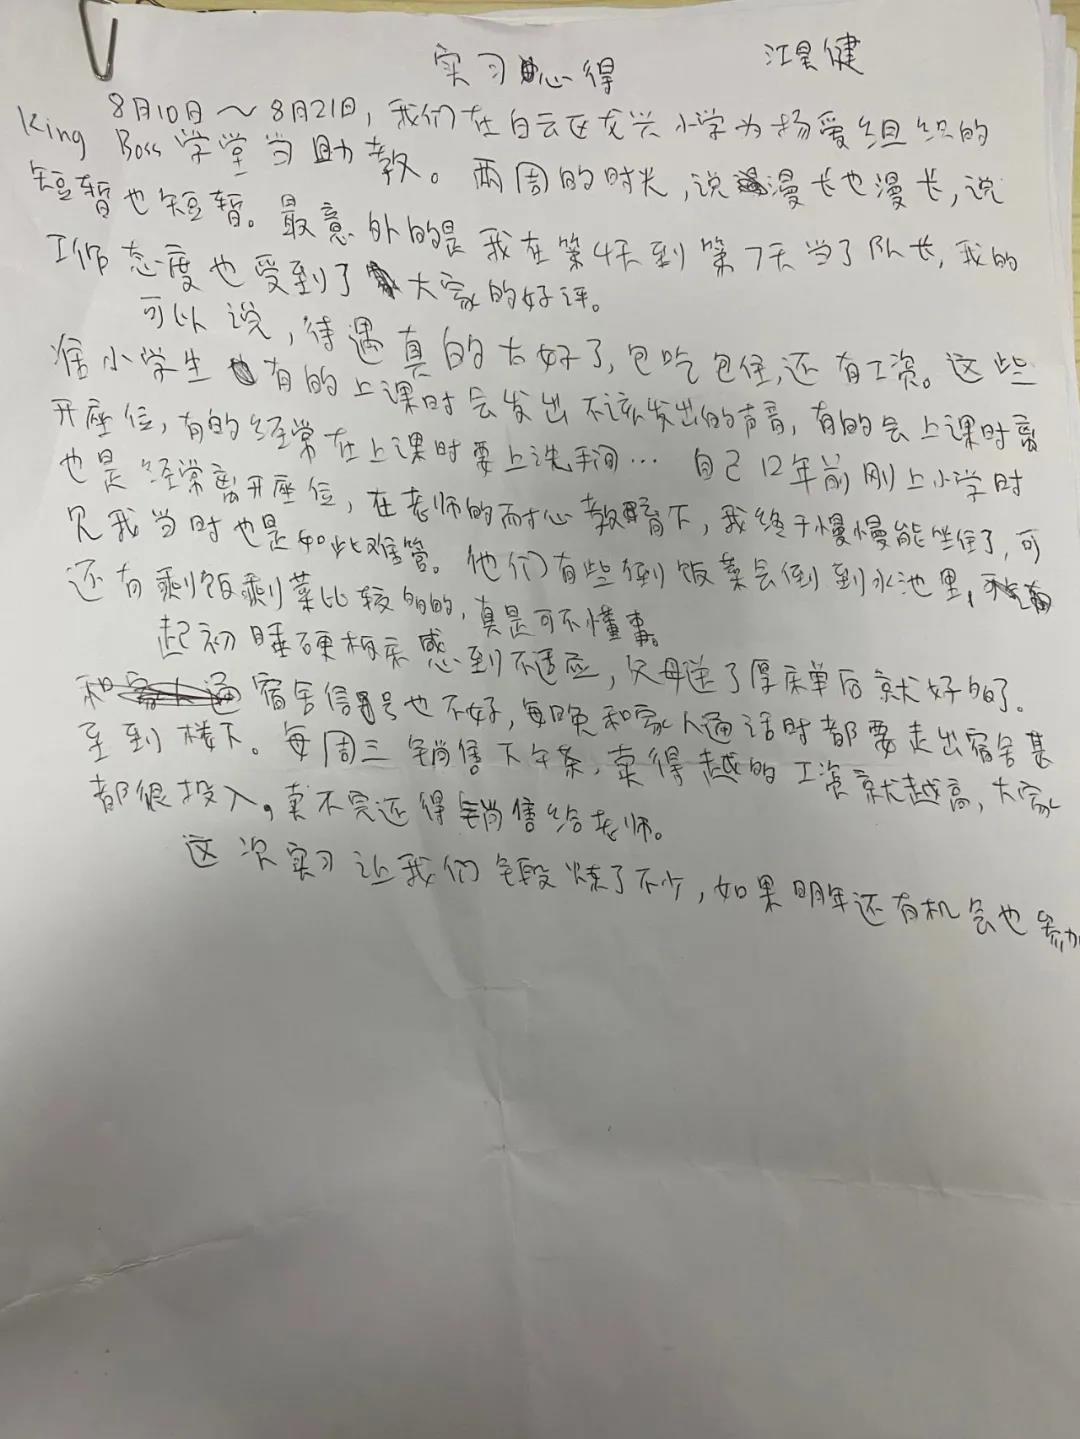 实习心得 江昊健
8月10日～8月21日，我们在白云区龙兴小学为扬爱组织的
King Boss学堂当助教。两周的时光，说漫长也漫长，说
短暂也短暂。最意外的是我在第4天到第7天当了队长，我的
工作态度也受到了大家的好评。
可以说，待遇真的太好了，包吃包住，还有工资。这些
准小学生有的上课时会发出不该发出的声音，有的会上课时离
开座位，有的经常在上课时要上洗手间… 自己12年前刚上小学时
也是经常离开座位，在老师的耐心教育下，我终于慢慢能坐住了，可
见我当时也是如此难管。他们有些倒饭菜会倒到水池里，
还有剩饭剩菜比较多的，真是可不懂事。
起初睡硬板床感到不适应，父母送了厚床单后就好的了。
宿舍信号也不好，每晚和家人通话时都要走出宿舍甚
至到楼下。每周三销售下午茶，卖得越的工资就越高，大家
都很投入。卖不完还得销售给老师。
这次实习让我们锻炼了不少，如果明年还有机会也参加